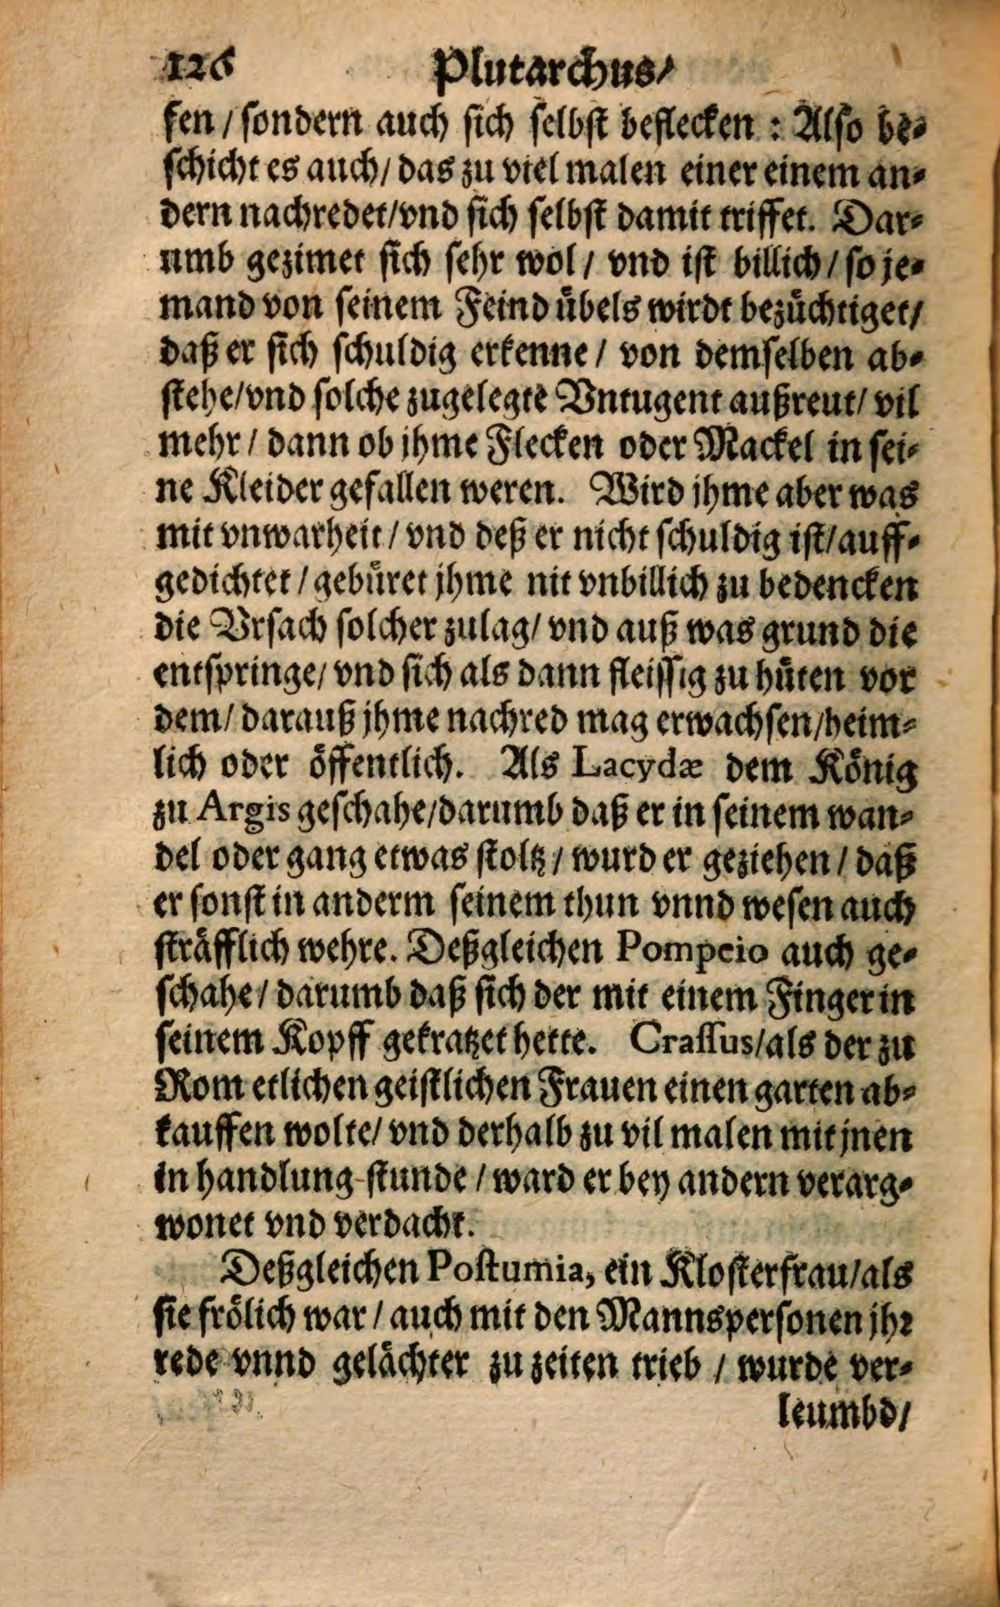 126 Plutarchus/
sen / sondern auch sich selbst beflecken : Also be-
schicht es auch / das zu viel malen einer einem an-
dern nachredet / vnd sich selbst damit triffet. Dar-
umb gezimet sich sehr wol / vnd ist billich / so je-
mand von seinem Feind übels wirdt bezüchtiget /
daß er sich schuldig erkenne / von demselben ab-
stehe / vnd solche zugelegte Vntugent außreut / vil
mehr / dann ob jhme Flecken oder Mackel in sei-
ne Kleider gefallen weren. Wird jhme aber was
mit vnwarheit / vnd deß er nicht schuldig ist / auff-
gedichtet / gebüret jhme nit vnbillich zu bedencken
die Vrsach solcher zulag / vnd auß was grund die
entspringe / vnd sich als dann fleissig zu hüten vor
dem / darauß jhme nachred mag erwachsen / heim-
lich oder öffentlich. Als Lacydæ dem König
zu Argis geschahe / darumb daß er in seinem wan-
del oder gang etwas stoltz / wurd er geziehen / daß
er sonst in anderm seinem thun vnnd wesen auch
sträfflich wehre. Deßgleichen Pompeio auch ge-
schahe / darumb daß sich der mit einem Finger in
seinem Kopff gekratzet hette. Crassus / als der zu
Rom etlichen geistlichen Frauen einen garten ab-
kauffen wolte / vnd derhalb zu vil malen mit jnen
in handlung stunde / ward er bey andern verarg-
wonet vnd verdacht.
Deßgleichen Postumia, ein Klosterfrau / als
sie frölich war / auch mit den Mannspersonen jhr
rede vnnd gelächter zu zeiten trieb / wurde ver-
leumbd /